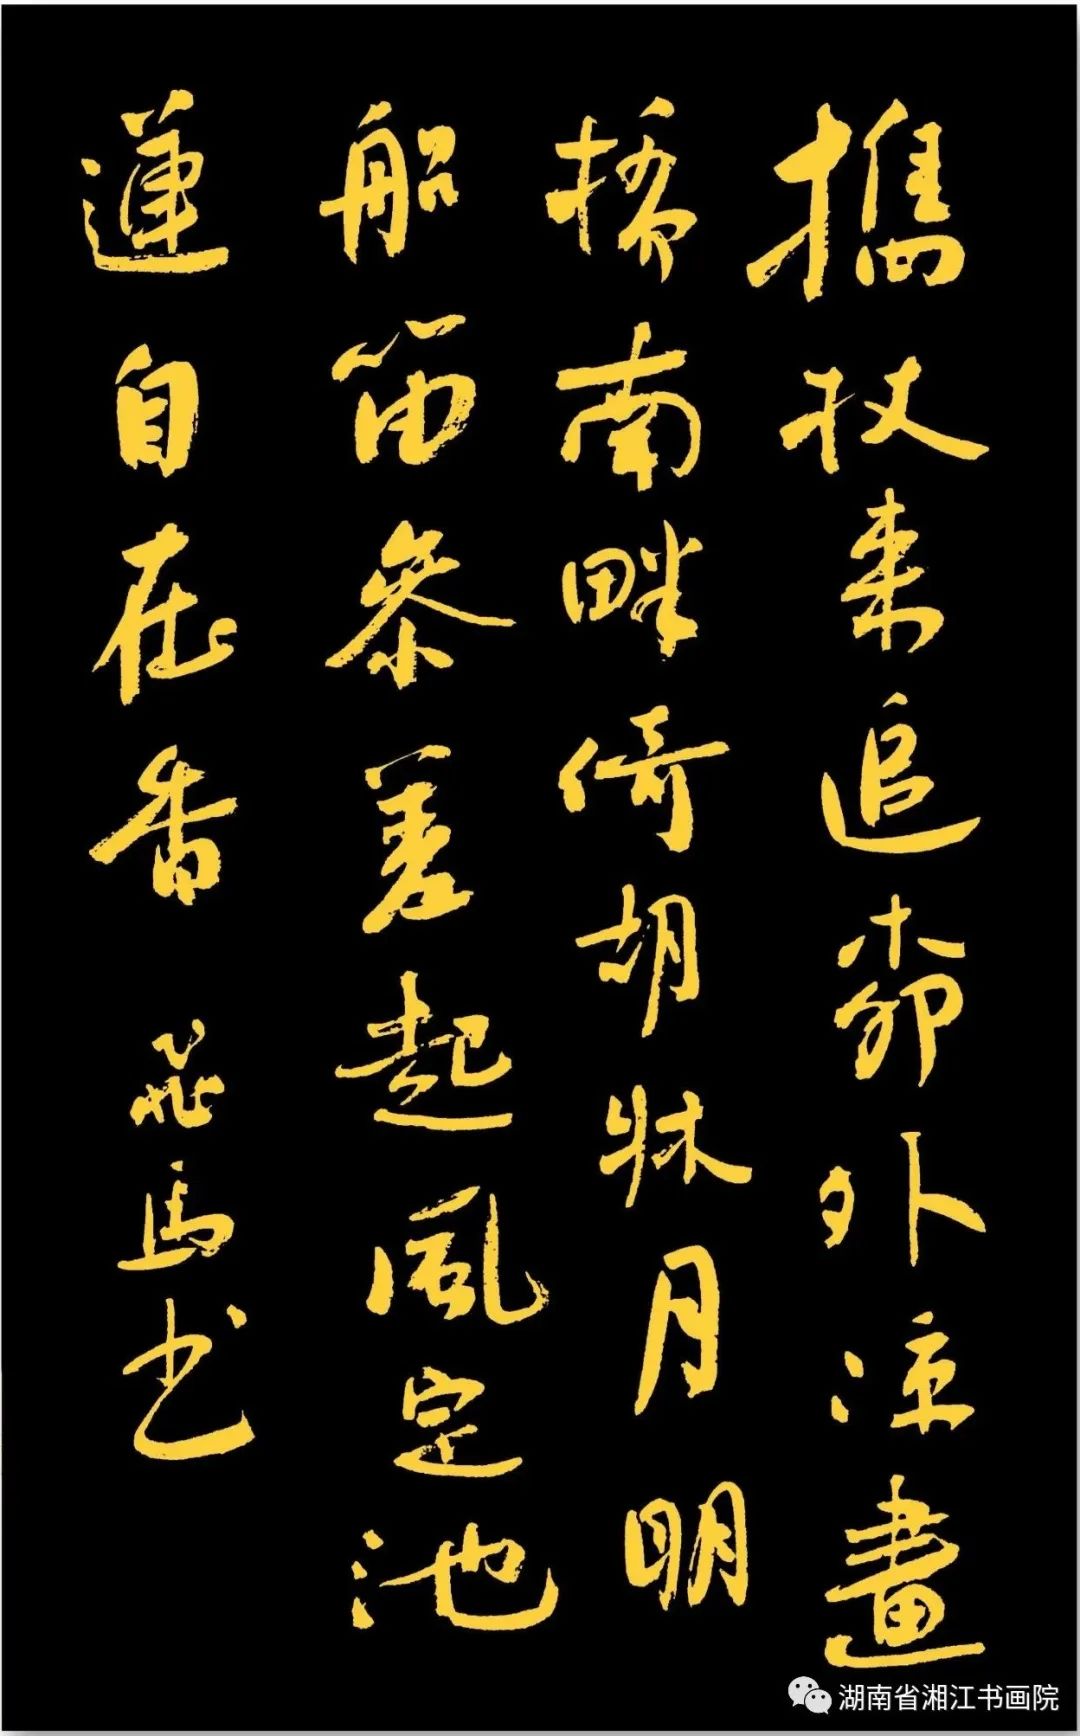 携杖来追柳外凉畫
橋南畔倚胡牀月明
船笛參差起風定池
蓮自在香 飛馬书
湖南省湘江书画院